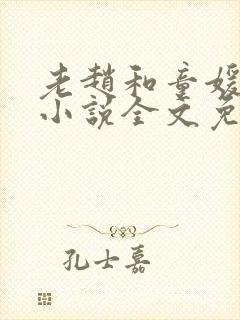 老趙和童媛
小說全文免
孔士嘉